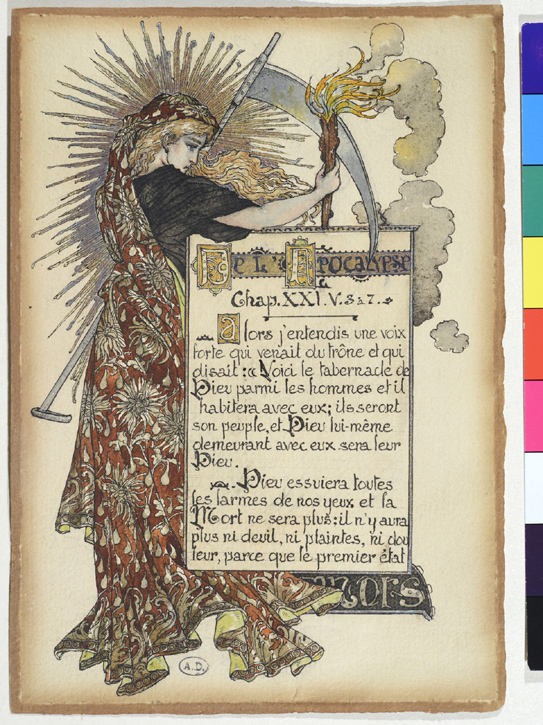 De L'Apocalypse
Chap. XXI. V. 3 à 7.
Alors j'entendis une voix
forte qui venait du trône et qui
disait: « Voici le tabernacle de
Dieu parmi les hommes et il
habitera avec eux; ils seront
son peuple, et Dieu lui-même
demeurant avec eux sera leur
Dieu.
Dieu essuiera toutes
les larmes de nos yeux et la
Mort ne sera plus: il n'y aura
plus ni deuil, ni plaintes, ni dou
leur, parce que le premier état
MORS
A.D.